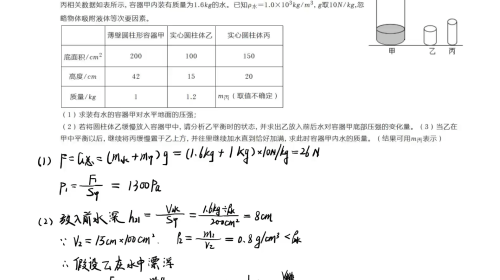 丙相关数据如表所示, 容器甲内装有质量为1.6kg的水。已知ρ水=1.0×10³kg/m³, g取10N/kg,忽
略物体吸附液体等次要因素。
薄壁圆柱形容器甲 实心圆柱体乙 实心圆柱体丙
底面积/cm² 200 100 150
高度/cm 42 15 20
质量/kg 1 1.2 m丙 (取值不确定)
甲 乙 丙
(1) 求装有水的容器甲对水平地面的压强;
(2) 若将圆柱体乙缓慢放入容器甲中, 请分析乙平衡时的状态, 并求出乙放入前后水对容器甲底部压强的变化量。(3) 当乙在
甲中平衡以后, 继续将丙缓慢置于乙上方, 并往里继续加水直到恰好加满, 求此时容器甲内水的质量。(结果可用m丙表示)
(1) F=G总=(m水+m甲)g=(1.6kg+1kg)×10N/kg=26N
P₁= F₁/S甲 = 1300Pa
(2) 放入前水深 = V水/S甲 = 1.6kg÷ρ水/200cm² = 8cm
∵ V乙=15cm×100cm². = m乙/V乙 = 0.8g/cm³ < ρ水
∴ 假设乙在水中漂浮